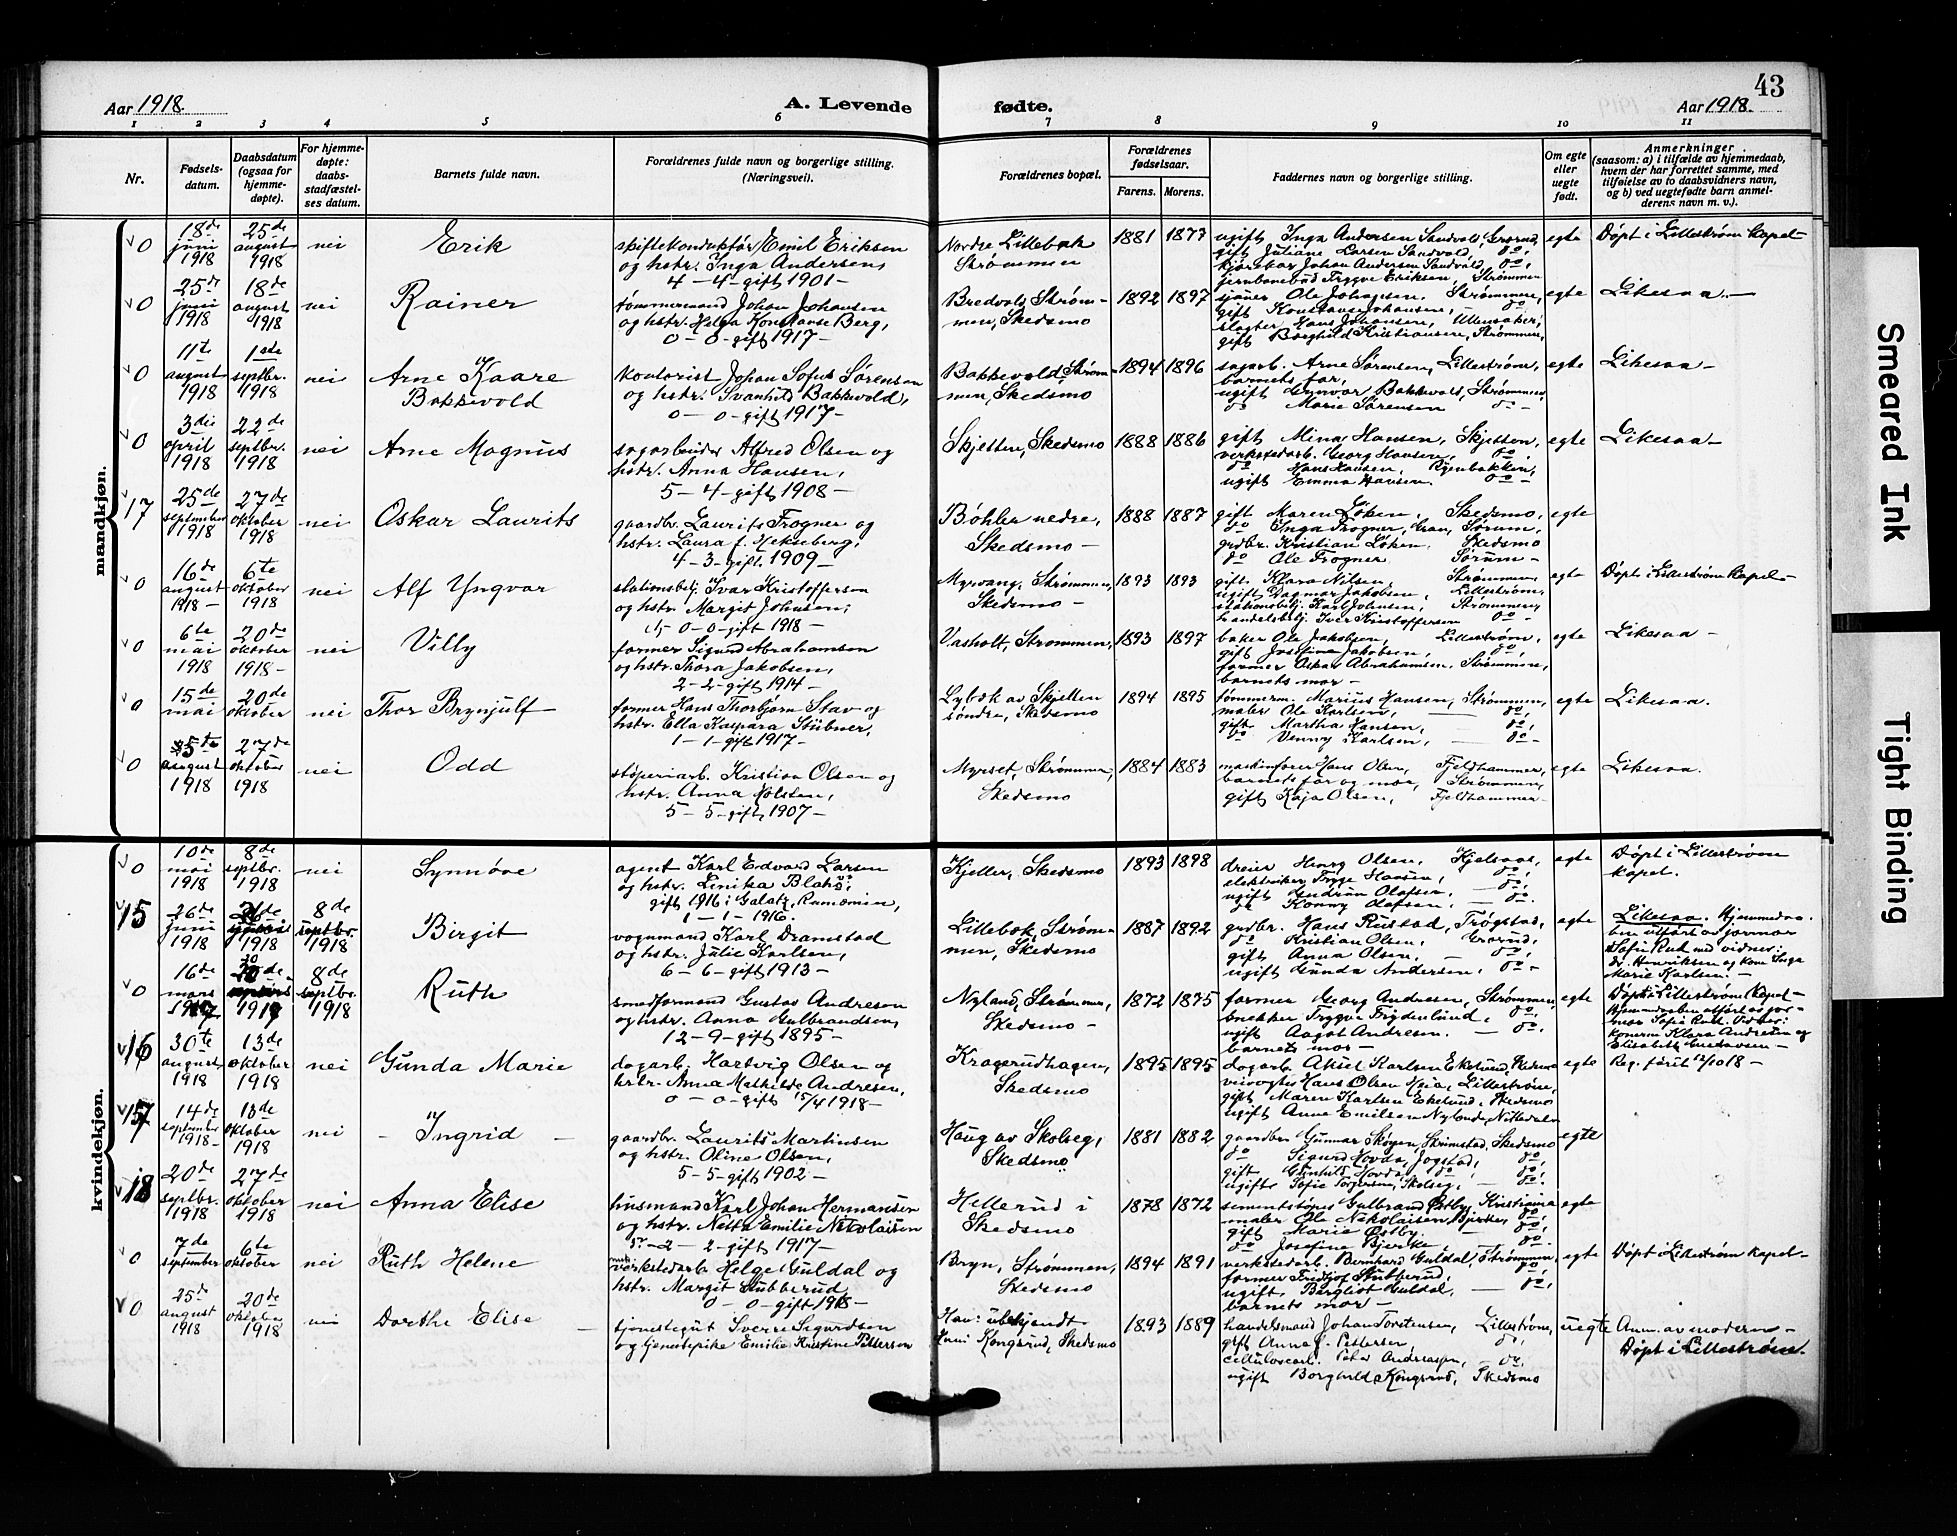 43
Aar 1918.
A. Levende
fødte.
Aar 1918.
1 2 3 4 5 6 7 8 9 10 11
Nr.
Fødsels-
datum.
Daabsdatum
(ogsaa for
hjemme-
døpte).
For hjemme-
døpte:
daabs-
stadfæstel-
ses datum.
Barnets fulde navn.
Forældrenes fulde navn og borgerlige stilling.
(Næringsvei).
Forældrenes bopæl.
Forældrenes
fødselsaar.
Farens. Morens.
Faddernes navn og borgerlige stilling.
Om egte
eller
uegte
født.
Anmerkninger
(saasom: a) i tilfælde av hjemmedaab,
hvem der har forrettet samme, med
tilføielse av to daabsvidners navn,
og b) ved uegtefødte barn anmel-
derens navn m. v.).
mandkjøn.
0
18de
juni
1918
25de
august
1918
nei
Erik
skiftekonduktør Emil Eriksen
og hstr. Inga Andersen,
4 - 4 - gift 1901 -
Nordre Lillebæk
Strømmen
1881 1877
ugift Inga Andersen Sandvold, Grorud,
gift Juliane Larsen Sandvold, do,
Johan Andersen Sandvold, do,
Trygve Eriksen, Strømmen
egte
Døpt i Lillestrøm kapel
0
25de
juni
1918
18de
august
1918
nei
Rainer
tømmermand Johan Johansen
og hstr. Helga Konstanse Berg,
0 - 0 - gift 1917 -
Bredvold, Strøm-
men, Skedsmo
1892 1897
Ole Johansen, Strømmen,
gift Konstanse Johansen, do
slagter Hans Johansen, Ullensaker,
gift Borghild Kristiansen, Strømmen,
egte
Likesaa -
0
11te
august
1918
1ste
septbr.
1918
nei
Arne Kaare
Bakkevold
kontorist Johan Sofus Sørensen
og hstr. Svanhild Bakkevold,
0 - 0 - gift 1917 -
Bakkevold, Strøm-
men, Skedsmo
1894 1896
sagarb. Arne Sørensen, Lillestrøm,
barnets far,
ugift Gynvor Bakkevold, Strømmen,
do Marie Sørensen do -
egte
Likesaa -
0
3die
april
1918
22de
septbr.
1918
nei
Arne Magnus
sagarbeider Alfred Olsen og
hstr. Anna Hansen,
5 - 4 - gift 1908 -
Skjetten, Skedsmo
1888 1886
gift Mina Hansen, Skjetten,
verkstedarb. Georg Hansen, do,
do Hans Hansen, Ryenbakken,
ugift Emma Hansen. do -
egte
Likesaa -
17
25de
september
1918
27de
oktober
1918
nei
Oskar Laurits
gaardbr. Laurits Frogner og
hstr. Laura f. Hekseberg,
4 - 3 - gift 1909 -
Bøhler nedre,
Skedsmo -
1888 1887
gift Maren Løken, Skedsmo,
do Inga Frogner, Gran, Sørum,
grdbr. Kristian Løken, Skedsmo
do Ole Frogner Sørum -
egte
0
16de
august
1918 -
6te
oktober
1918
nei
Alf Yngvar
stationsbetj. Ivar Kristoffersen
og hstr. Margit Johnsen,
0 - 0 - gift 1918 -
Myrvang, Strømmen,
Skedsmo -
1893 1893
gift Klara Nilsen, Strømmen
ugift Dagmar Jakobsen, Lillestrøm,
stationsbetj. Karl Johnsen, Strømmen,
handelsbetj. Iver Kristoffersen do -
egte
Døpt i Lillestrøm kapel -
0
6te
mai
1918
20de
oktober
1918 -
nei
Villy
former Sigurd Abrahamsen
og hstr. Thora Jakobsen,
2 - 2 - gift 1914 -
Vasholt, Strømmen,
1893 1897
baker Ole Jakobsen, Lillestrøm,
gift Josefina Jakobsen, do,
former Oskar Abrahamsen, Strømmen,
barnets mor -
egte
Likesaa -
0
15de
mai
20de
oktober
nei
Thor Brynjulf
former Hans Thorbjørn Stav og
hstr. Ella Kaspara Stübner,
1 - 1 - gift 1917 -
Lybæk av Skjetten
søndre, Skedsmo
1894 1895
tømmerm. Marius Hansen, Strømmen,
maler Ole Karlsen, do,
gift Martha Hansen, do,
do Venny Karlsen, do -
egte
Likesaa.
0
5te
august
1918
27de
oktober
1918
nei
Odd
støperiarb. Kristian Olsen og
hstr. Anna Holsten,
5 - 5 - gift 1907 -
Myrset, Strømmen,
Skedsmo
1884 1883
maskinfører Hans Olsen, Fjeldhammer,
barnets far og mor, Strømmen,
gift Kaja Olsen, Fjeldhammer -
egte
Likesaa.
kvindekjøn.
0
10de
mai
1918
8de
septbr.
1918
nei
Synnøve
agent Karl Edvard Larsen
og hstr. Lenika Blahs,
gift 1916 i Galatz, Rumænien,
1 - 1 - 1916.
Kjeller, Skedsmo
1893 1898
dreier Henry Olsen, Kjelsaas,
elektriker Trygve Hansen, do,
ugift Gudrun Olafsen, do,
do Konny Olafsen, do -
egte
Døpt i Lillestrøm
kapel.
15
26de
juni
1918
1918
8de
septbr.
1918
Birgit
vognmand Karl Dramstad
og hstr. Julie Karlsen,
6 - 6 - gift 1913 -
Lillebæk, Strøm-
men, Skedsmo
1887 1892
grdbr. Hans Rustad, Trøgstad,
do Kristian Olsen, Grorud,
gift Anna Olsen, do,
ugift Gunda Andersen, do -
egte
Likesaa. Hjemmedaa-
ben utført av jormor
Sofie Rud med vidner:
dr. Henriksen og kone Inga
Marie Karlsen. -
0
16de
mars
8de
septbr.
1918
Ruth
smedformand Gustav Andresen
og hstr. Anna Gulbrandsen,
12 - 9 - gift 1895 -
Nyland, Strømmen,
Skedsmo -
1872 1875
former Georg Andresen, Strømmen,
snekker Trygve Frydenlund, do,
ugift Aagot Andresen. do,
barnets mor -
egte
Døpt i Lillestrøm kapel -
Hjemmedaaben utført av jor-
mor Sofie Rud. Vidner:
konerne Klara Andresen og
Elisabeth Gustavsen -
16
30te
august
1918
13de
oktober
1918
nei
Gunda Marie
dagarb. Hartvig Olsen og
hstr. Anna Mathilde Andresen,
0 - 0 - gift 15/4 1918 -
Kragerudhagen,
Skedsmo
1895 1895
dagarb. Aksel Karlsen Ekelund, Skedsmo
veivogter Hans Olsen Moia, Lillestrøm,
gift Maren Karlsen Ekelund, Skedsmo
ugift Anna Emilsen Nyland, Nittedalen
egte
Reg. førit 12/10 18 -
17
14de
september
1918 -
13de
oktober
1918
nei
- Ingrid -
gaardbr. Laurits Martinsen
og hstr. Oline Olsen,
5 - 5 - gift 1902 -
Haug av Skolseg,
Skedsmo
1881 1882
gaardbr. Gunnar Skøyen, Strømstad, Skedsmo
do Sigurd Hovda, Jogstad, do,
gift Gunhild Hovda, do, do,
ugift Sofie Torgersen, Skolseg, do.
egte
18
20de
septbr.
1918
27de
oktober
1918
nei
Anna Elise
husmand Karl Johan Hermansen
og hstr. Netta Emilie Nikolaisen
2 - 2 - gift 1917 -
Hellerud i
Skedsmo
1878 1872
sementstøper Gulbrand Østby, Kristiania
maler Ole Nikolaisen Bjerke, do,
gift Marie Østby, do,
do Josefine Bjerke, do -
egte
0
7de
september
6te
oktober
nei
Ruth Helene
verkstedarb. Helge Guldal og
hstr. Margit Stubberud,
0 - 0 - gift 1918 -
Bryn, Strømmen,
Skedsmo
1894 1891
verkstedarb. Bernhard Guldal, Strømmen,
former Fridtjof Stubberud, do,
ugift Bergliot Guldal, do,
barnets mor -
egte
Døpt i Lillestrøm kapel -
0
25de
august
1918
20de
oktober
1918
nei
Dorthe Elise -
tjenestegut Sverre Sigurdsen
og tjenestepike Emilie Kristine Pettersen
Han: ubekjendt
Hun: Kongsrud, Skedsmo
1893 1889
handelsmand Johan Torstensen, Lillestrøm,
gift Anna J. Pettersen, do,
cellulosearb. Peter Andreassen, do,
ugift Borghild Kongsrud, Skedsmo
uegte
Anm. av moderen -
Døpt i Lillestrøm.
Smeared Ink
Tight Binding